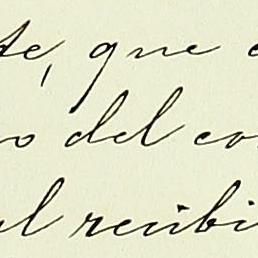 te, que
o del co
al recibi